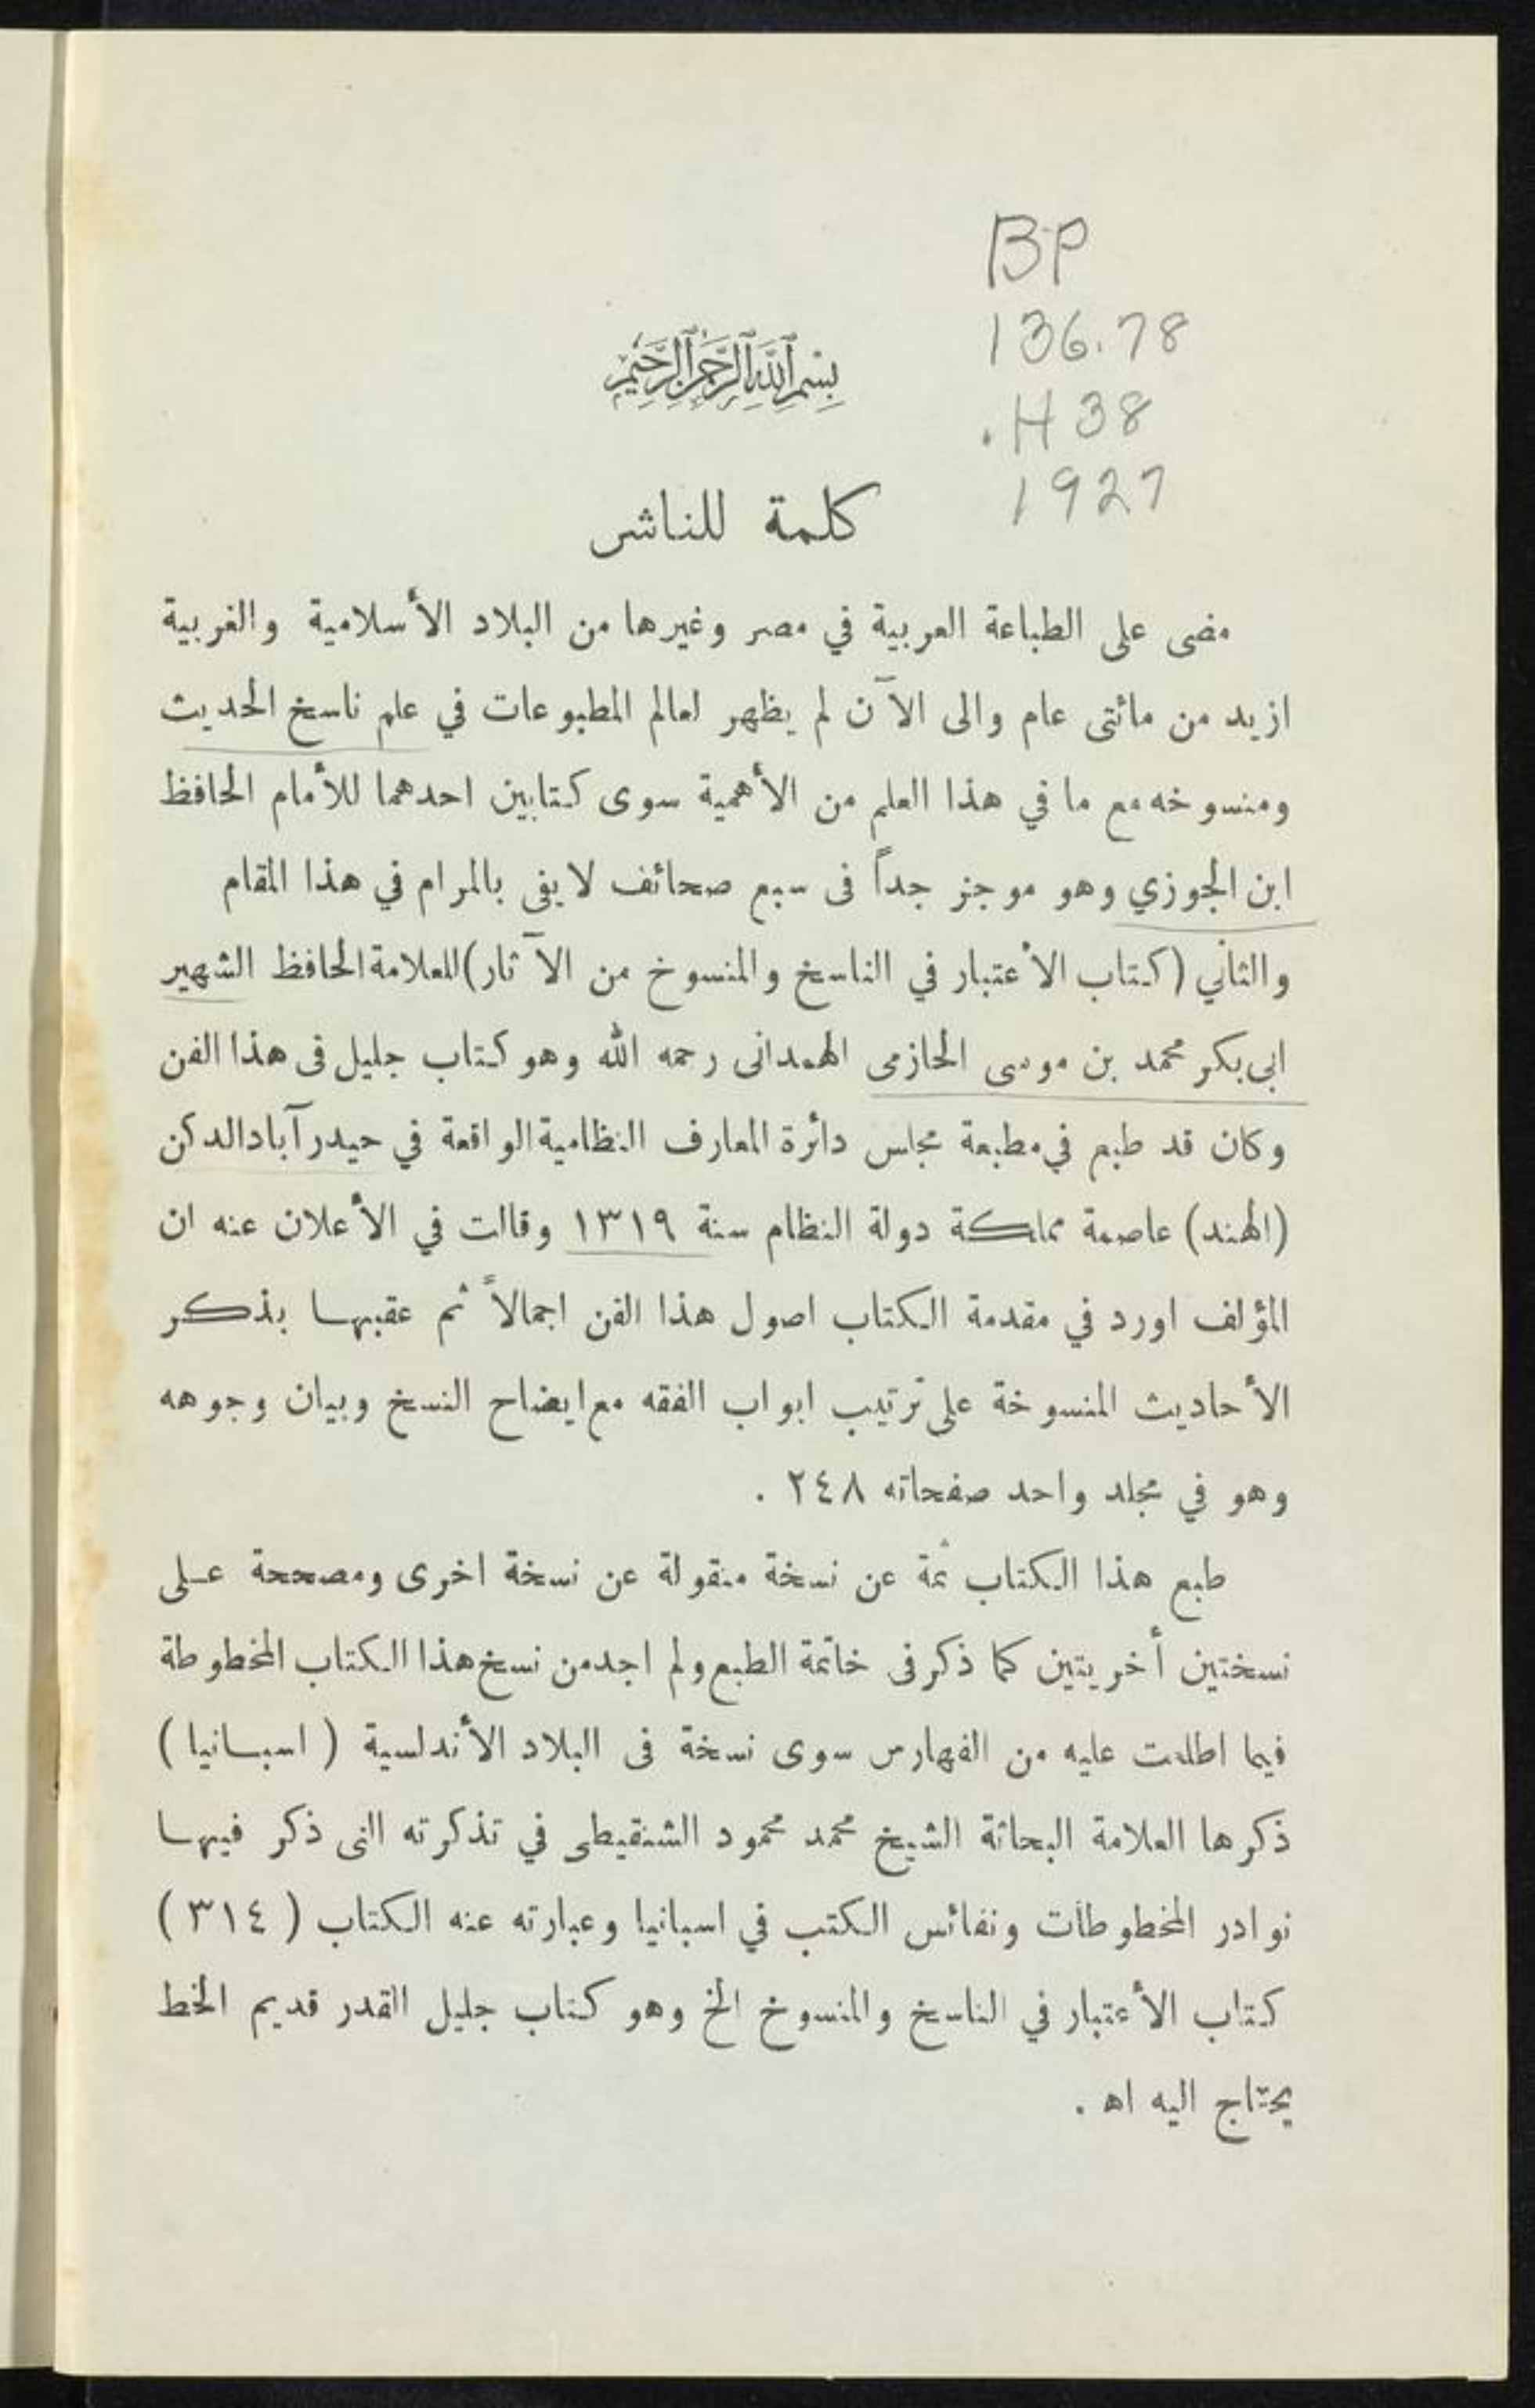 BP
136.78
.H38
1927
بسم الله الرحمن الرحيم
كلمة للناشر
مضى على الطباعة العربية في مصر وغيرها من البلاد الأسلامية والغربية
ازيد من مائتى عام والى الآن لم يظهر لعالم المطبوعات في علم ناسخ الحديث
ومنسوخه مع ما في هذا العلم من الأهمية سوى كتابين احدهما للأمام الحافظ
ابن الجوزي وهو موجز جداً فى سبع صحائف لا يفى بالمرام في هذا المقام
والثاني (كتاب الأعتبار في الناسخ والمنسوخ من الآثار) للعلامة الحافظ الشهير
ابى بكر محمد بن موسى الحازمى الهمدانى رحمه الله وهو كتاب جليل فى هذا الفن
وكان قد طبع في مطبعة مجلس دائرة المعارف النظامية الواقعة في حيدر آباد الدكن
(الهند) عاصمة مملكة دولة النظام سنة ١٣١٩ وقالت في الأعلان عنه ان
المؤلف اورد في مقدمة الكتاب اصول هذا الفن اجمالاً ثم عقبها بذكر
الأحاديث المنسوخة على ترتيب ابواب الفقه مع ايضاح النسخ وبيان وجوهه
وهو في مجلد واحد صفحاته ٢٤٨ .
طبع هذا الكتاب ثمة عن نسخة منقولة عن نسخة اخرى ومصححة على
نسختين أخريتين كما ذكر فى خاتمة الطبع ولم اجد من نسخ هذا الكتاب المخطوطة
فيما اطلعت عليه من الفهارس سوى نسخة فى البلاد الأندلسية ( اسبانيا )
ذكرها العلامة البحاثة الشيخ محمد محمود الشنقيطى في تذكرته التى ذكر فيها
نوادر المخطوطات ونفائس الكتب في اسبانيا وعبارته عنه الكتاب ( ٣١٤ )
كتاب الأعتبار في الناسخ والمنسوخ الخ وهو كتاب جليل القدر قديم الخط
يحتاج اليه اه .